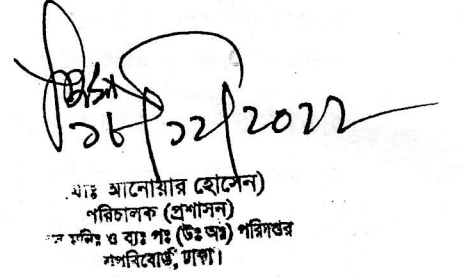 ১৮/১২/২০২২
মোঃ আনোয়ার হোসেন)
পরিচালক (প্রশাসন)
মনিঃ ও ব্যঃ পঃ (উঃ অঃ) পরিদপ্তর
বাপবিবোর্ড, ঢাকা।